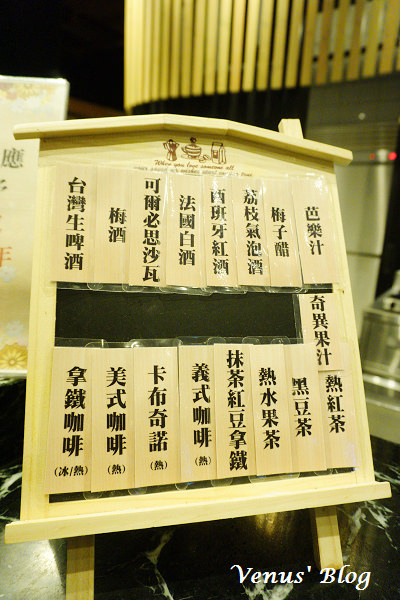 When you love someone all
芭樂汁
梅子醋
荔枝氣泡酒
西班牙紅酒
法國白酒
可爾必思沙瓦
梅酒
台灣生啤酒
奇異果汁
熱紅茶
黑豆茶
熱水果茶
抹茶紅豆拿鐵
義式咖啡(熱)
卡布奇諾(熱)
美式咖啡(熱)
拿鐵咖啡(冰/熱)
應
年
Venus' Blog